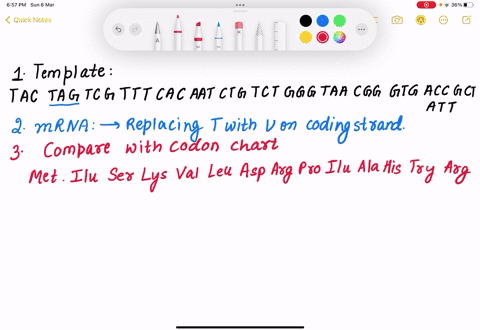 6:57 PM Sun 6 Mar
36%
Quick Notes
1. Template:
TAC TAG TCG TTT CAC AAT CTG TCT GGG TAA CGG GTG ACC GCT
ATT
2. mRNA: → Replacing T with U on coding strand.
3. Compare with Codon chart
Met. Ilu Ser Lys Val Leu Asp Arg Pro Ilu Ala His Try Arg